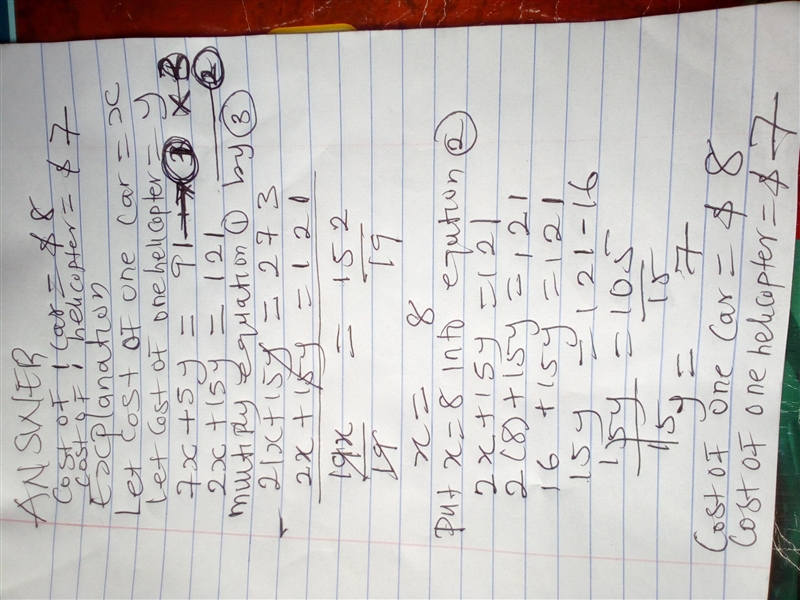 ANSWER
Cost of 1 car = $ 8
Cost of 1 helicopter = $ 7
Explanation
Let cost of one car = x
Let cost of one helicopter = y
7x + 5y = 91 — ① × 3
2x + 15y = 121 — ②
multiply equation ① by ③
21x + 15y = 273
- 2x + 15y = 121
19x = 152
19 19
x = 8
Put x = 8 into eqution ②
2x + 15y = 121
2(8) + 15y = 121
16 + 15y = 121
15y = 121 - 16
15y = 105
15 15
y = 7
Cost of one car = $ 8
Cost of one helicopter = $ 7